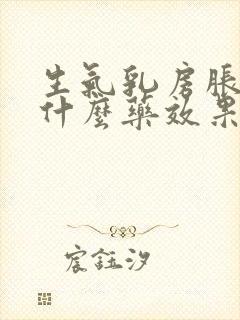 生氣乳房脹
什麼藥效果
宸鈺汐